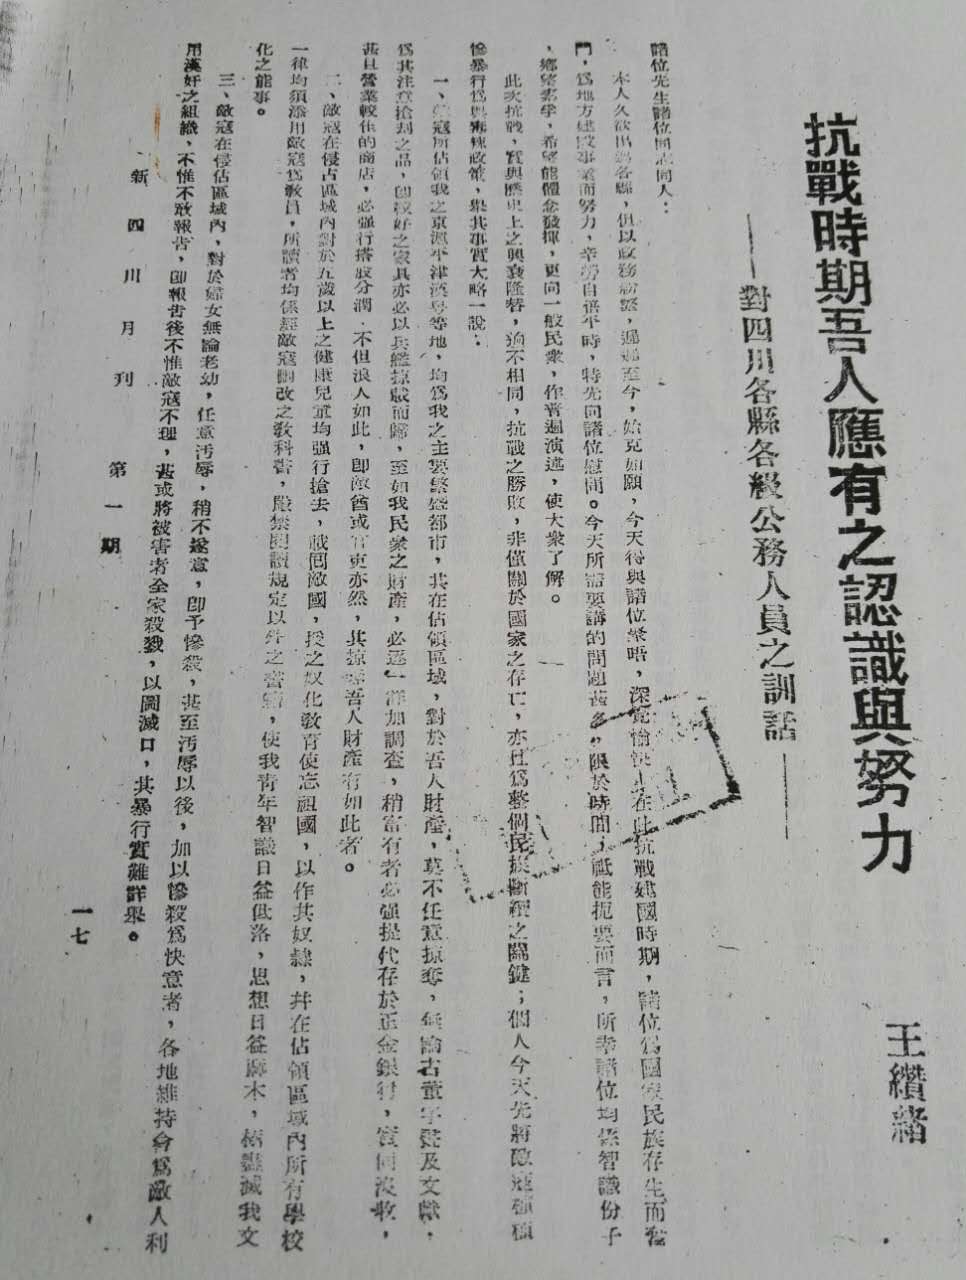 抗戰時期吾人應有之認識與努力
——對四川各縣各級公務人員之訓話——
王纘緒
諸位先生諸位同志同人：
本人久欲出巡各縣，但以政務紛繁，遲遲至今，始克如願，今天得與諸位聚晤，深覺愉快！在此抗戰建國時期，諸位爲國家民族存生而奮
鬥，爲地方建設事業而努力，辛勞自倍平時，特先向諸位慰問。今天所需要講的問題甚多，限於時間，祗能扼要而言，所幸諸位均係智識份子
，鄉望素孚，希望能體念發揮，更向一般民衆，作普遍演述，使大衆了解。
此次抗戰，實與歷史上之興衰隆替，逈不相同，抗戰之勝敗，非僅關於國家之存亡，亦且爲整個民族斷續之關鍵；個人今天先將敵寇種種
慘暴行爲與毒辣政策，舉其事實大略一說：
一、敵寇所佔領我之京滬平津漢粵等地，均爲我之主要繁盛都市，其在佔領區域，對於吾人財產，莫不任意掠奪，無論古董字畫及文獻，
爲其注意搶刼之品，即較好之家具亦必以兵艦掠載而歸，至如我民衆之財產，必逐一詳加調查，稍富有者必强提代存於正金銀行，實同沒收，
甚且營業較佳的商店，必强行搭股分潤，不但浪人如此，即敵酋或官吏亦然，其掠奪吾人財產有如此者。
二、敵寇在侵占區域內對於五歲以上之健康兒童均强行搶去，載囘敵國，授之奴化教育使忘祖國，以作其奴隸，幷在佔領區域內所有學校
一律均須添用敵寇爲教員，所讀者均係經敵寇刪改之教科書，嚴禁閱讀規定以外之書籍，使我青年智識日益低落，思想日益麻木，極盡滅我文
化之能事。
三、敵寇在侵佔區域內，對於婦女無論老幼，任意汚辱，稍不遂意，即予慘殺，甚至汚辱以後，加以慘殺爲快意者，各地維持會爲敵人利
用漢奸之組織，不惟不敢報告，即報告後不惟敵寇不理，甚或將被害者全家殺戮，以圖滅口，其暴行實難詳舉。
新四川月刊　第一期
一七